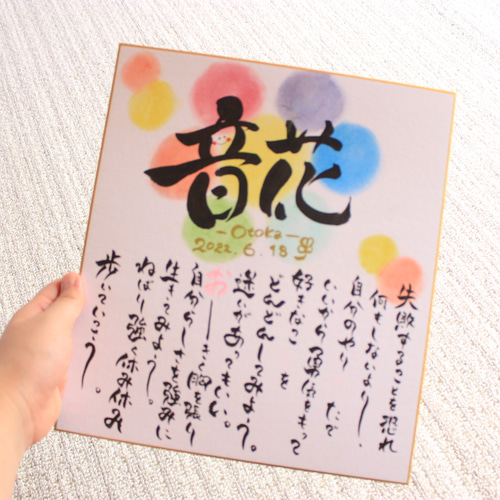 音花
-Otoka-
2022.6.18
失敗することを恐れ
何もしないより、
自分のやり たで
いいから 勇気をもって
好きなこ を
どんどんしてみよう。
迷 があってもいい。
お
自分 きく胸を張り
生 てみよう。
ねばり強く休み休み
歩いていこう。